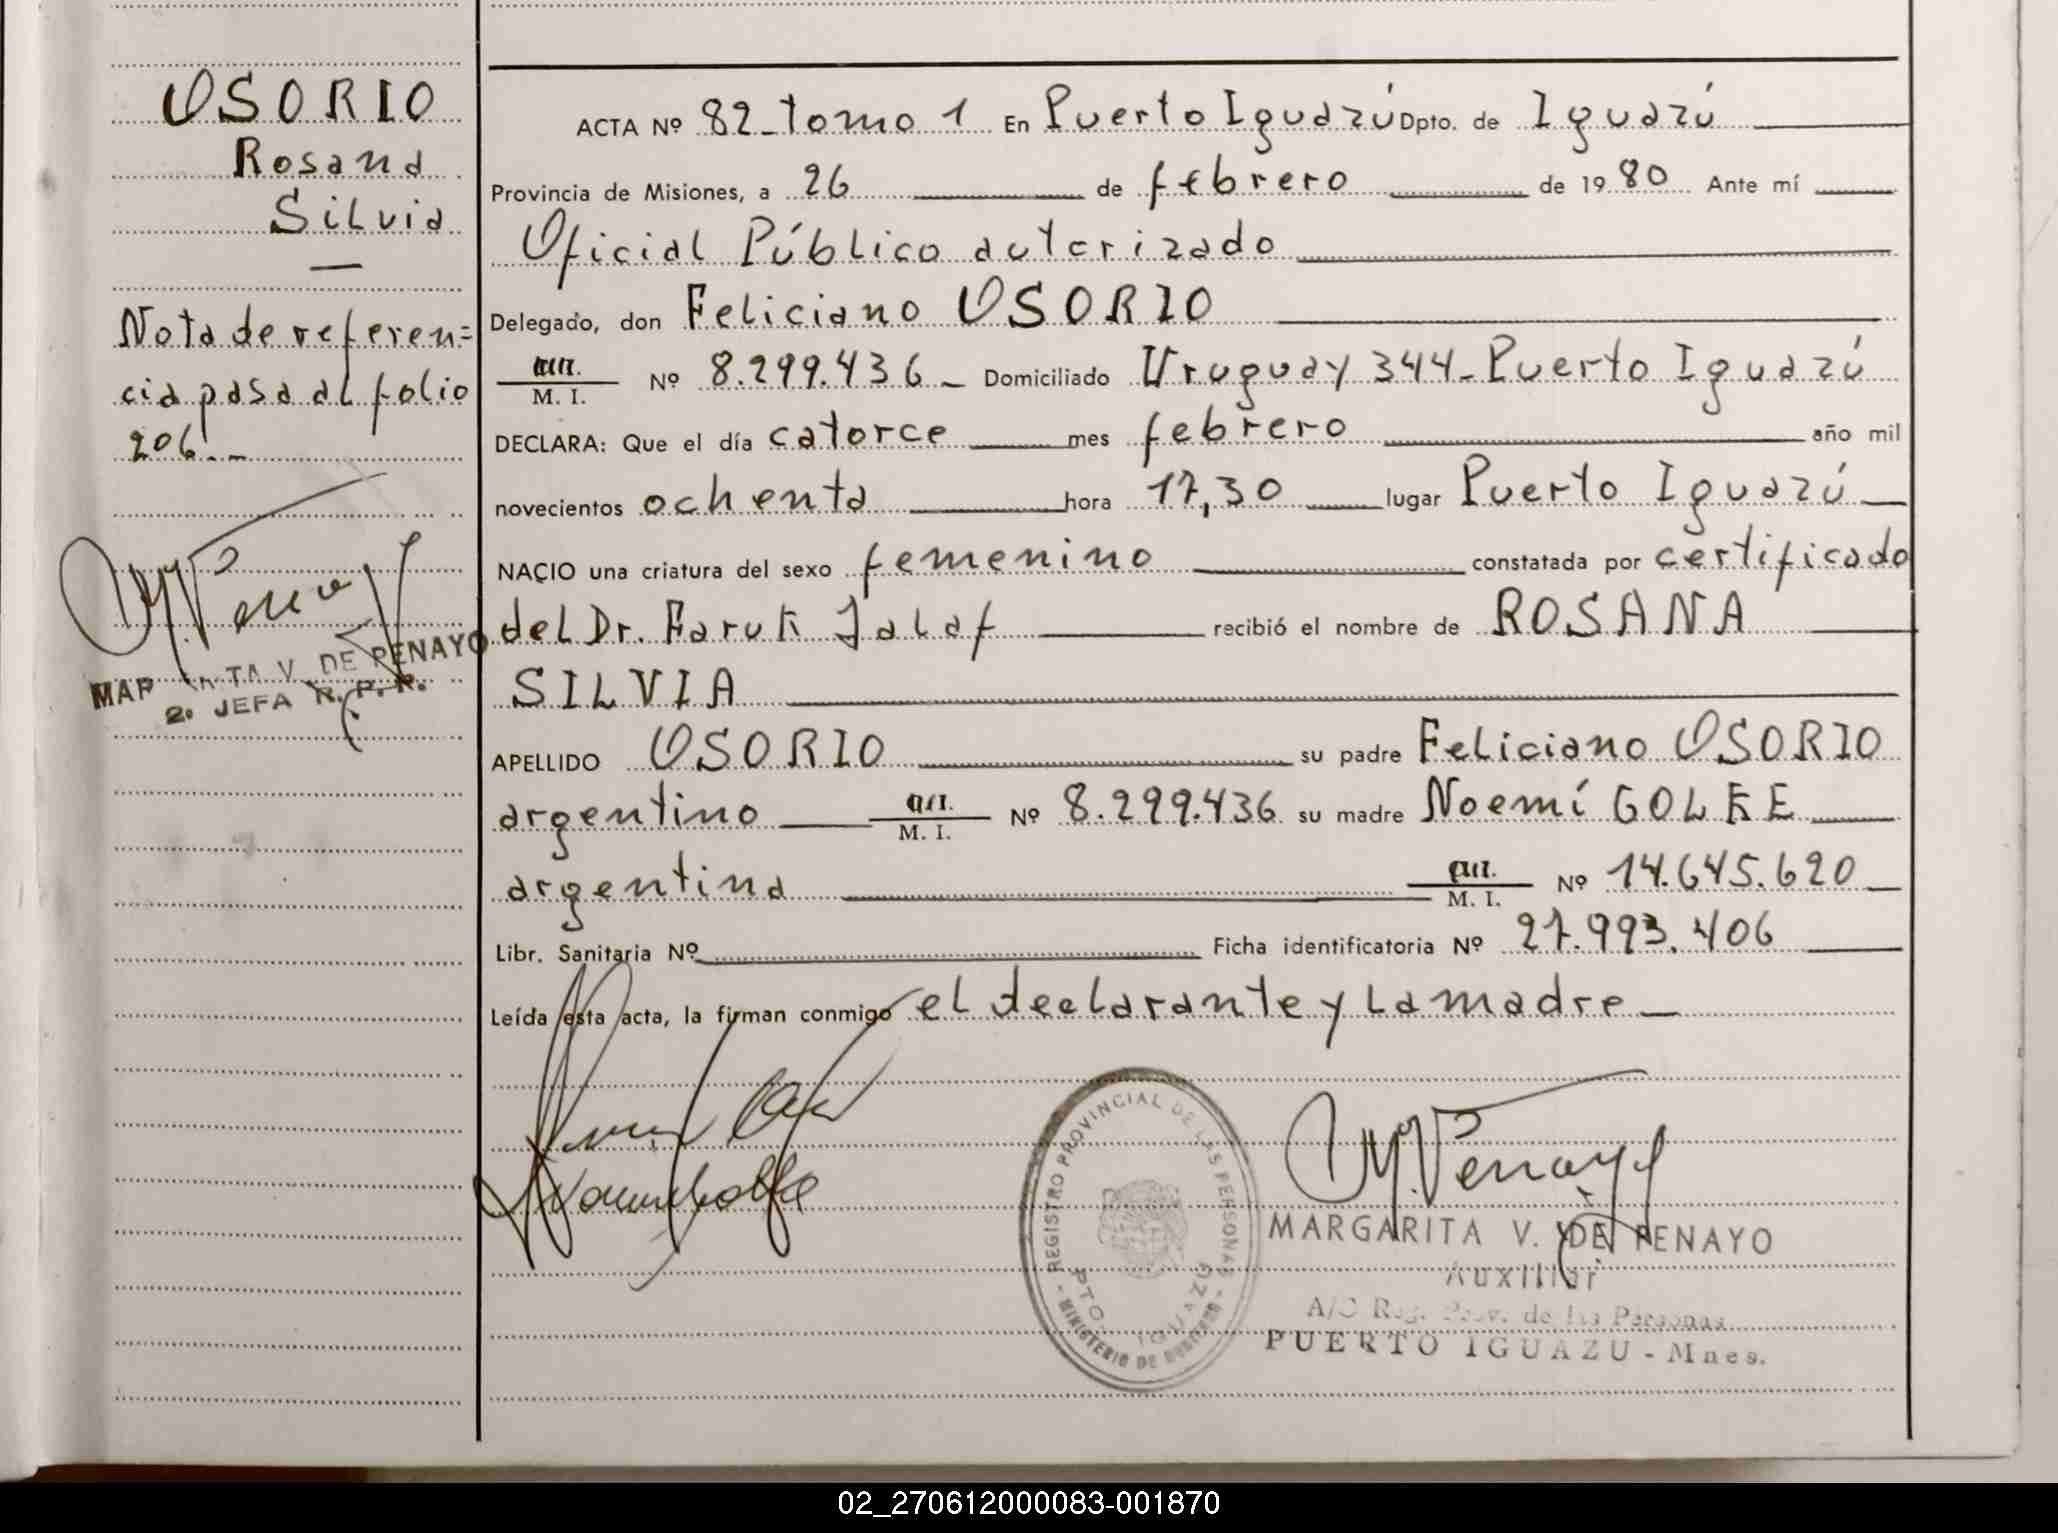 OSORIO
Rosana
Silvia
Nota de referen=
cia pasa al folio
206.-
M. V. Penayo
MAR TA V. DE PENAYO
2. JEFA R. P. P.
ACTA Nº 82 - tomo 1 En Puerto Iguazú Dpto. de Iguazú
Provincia de Misiones, a 26 de febrero de 1980 Ante mí
Oficial Público autorizado
Delegado, don Feliciano OSORIO
M. I. Nº 8.299.436 - Domiciliado Uruguay 344 - Puerto Iguazú
DECLARA: Que el día catorce mes febrero año mil
novecientos ochenta hora 17,30 lugar Puerto Iguazú
NACIO una criatura del sexo femenino constatada por certificado
del Dr. Faruk Jalaf recibió el nombre de ROSANA
SILVIA
APELLIDO OSORIO su padre Feliciano OSORIO
argentino M. I. Nº 8.299.436 su madre Noemí GOLKE
argentina M. I. Nº 14.645.620
Libr. Sanitaria Nº Ficha identificatoria Nº 27.993.406
Leída esta acta, la firman conmigo el declarante y la madre
REGISTRO PROVINCIAL DE LAS PERSONAS
DPTO. IGUAZU
- MINISTERIO DE GOBIERNO -
M. V. Penayo
MARGARITA V. DE PENAYO
Auxiliar
A/C Reg. Prov. de las Personas
PUERTO IGUAZU - Mnes.
02_270612000083-001870